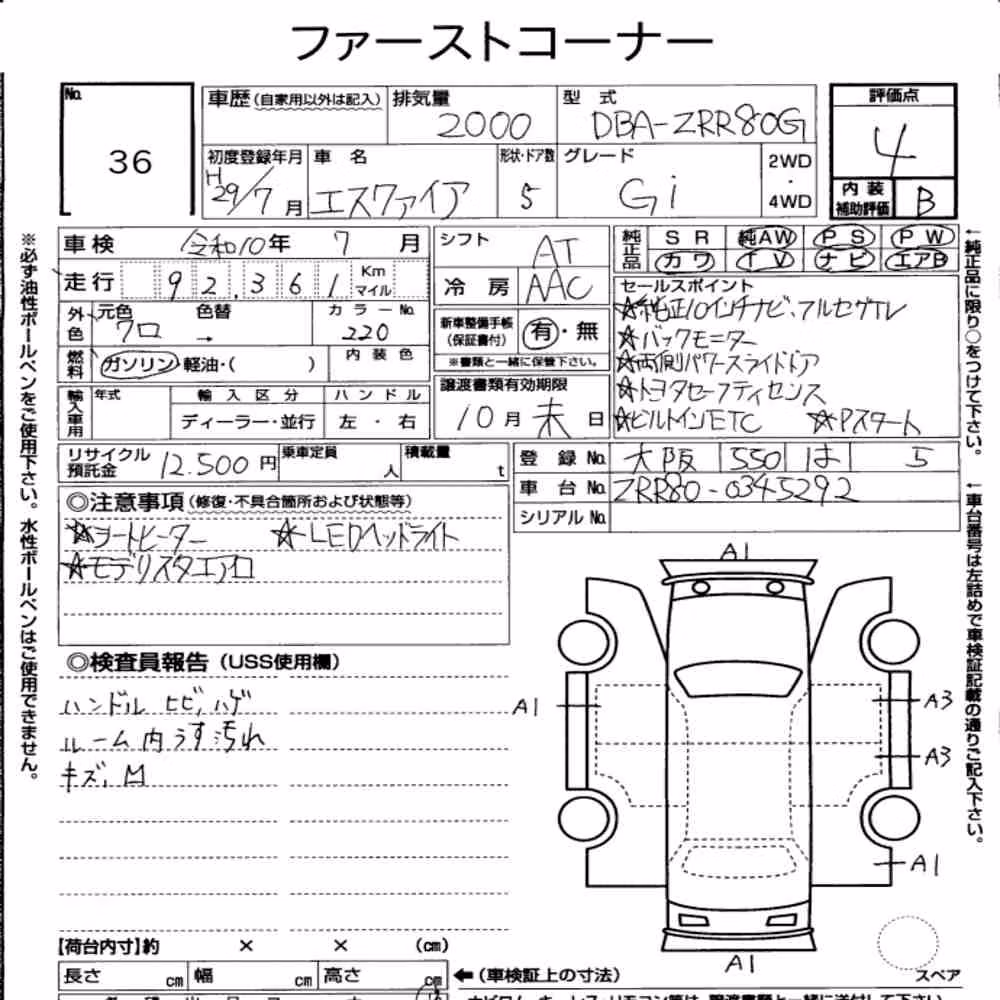 ファーストコーナー
No.
36
車歴(自家用以外は記入) 排気量 2000 型式 DBA-ZRR80G
評価点 4
初度登録年月 H29/7月 車名 エスクァイア 形状・ドア数 5 グレード Gi 2WD・4WD
内装補助評価 B
車検 令和10年 7月
シフト AT
純正品 SR 純AW PS PW
カワ TV ナビ エアB
走行 92,361 Km マイル
冷房 AAC
外色 元色 クロ 色替 → カラーNo. 220
新車整備手帳(保証書付) 有・無
※書類と一緒に保管下さい。
燃料 ガソリン・軽油・( ) 内装色
セールスポイント
☆純正10インチナビ、フルセグTV
☆バックモニター
☆両側パワースライドドア
☆トヨタセーフティセンス
☆ビルトインETC ☆Pスタート
輸入車用 年式 輸入区分 ディーラー・並行 ハンドル 左・右
譲渡書類有効期限 10月末日
リサイクル預託金 12.500円 乗車定員 人 積載量 t
登録No. 大阪 550 は 5
車台No. ZRR80-0345292
シリアルNo.
◎注意事項(修復・不具合箇所および状態等)
☆シートヒーター ☆LEDヘッドライト
☆モデリスタエアロ
◎検査員報告(USS使用欄)
ハンドル ヒビ,ハゲ
ルーム内うす汚れ
キズ,M
A1
A1
A3
A3
A1
A1
スペア
【荷台内寸】約 × × (cm)
長さ cm 幅 cm 高さ cm ←(車検証上の寸法)
※必ず油性ボールペンをご使用下さい。水性ボールペンはご使用できません。
←純正品に限り○をつけて下さい。
←車台番号は左詰めで車検証記載の通りご記入下さい。